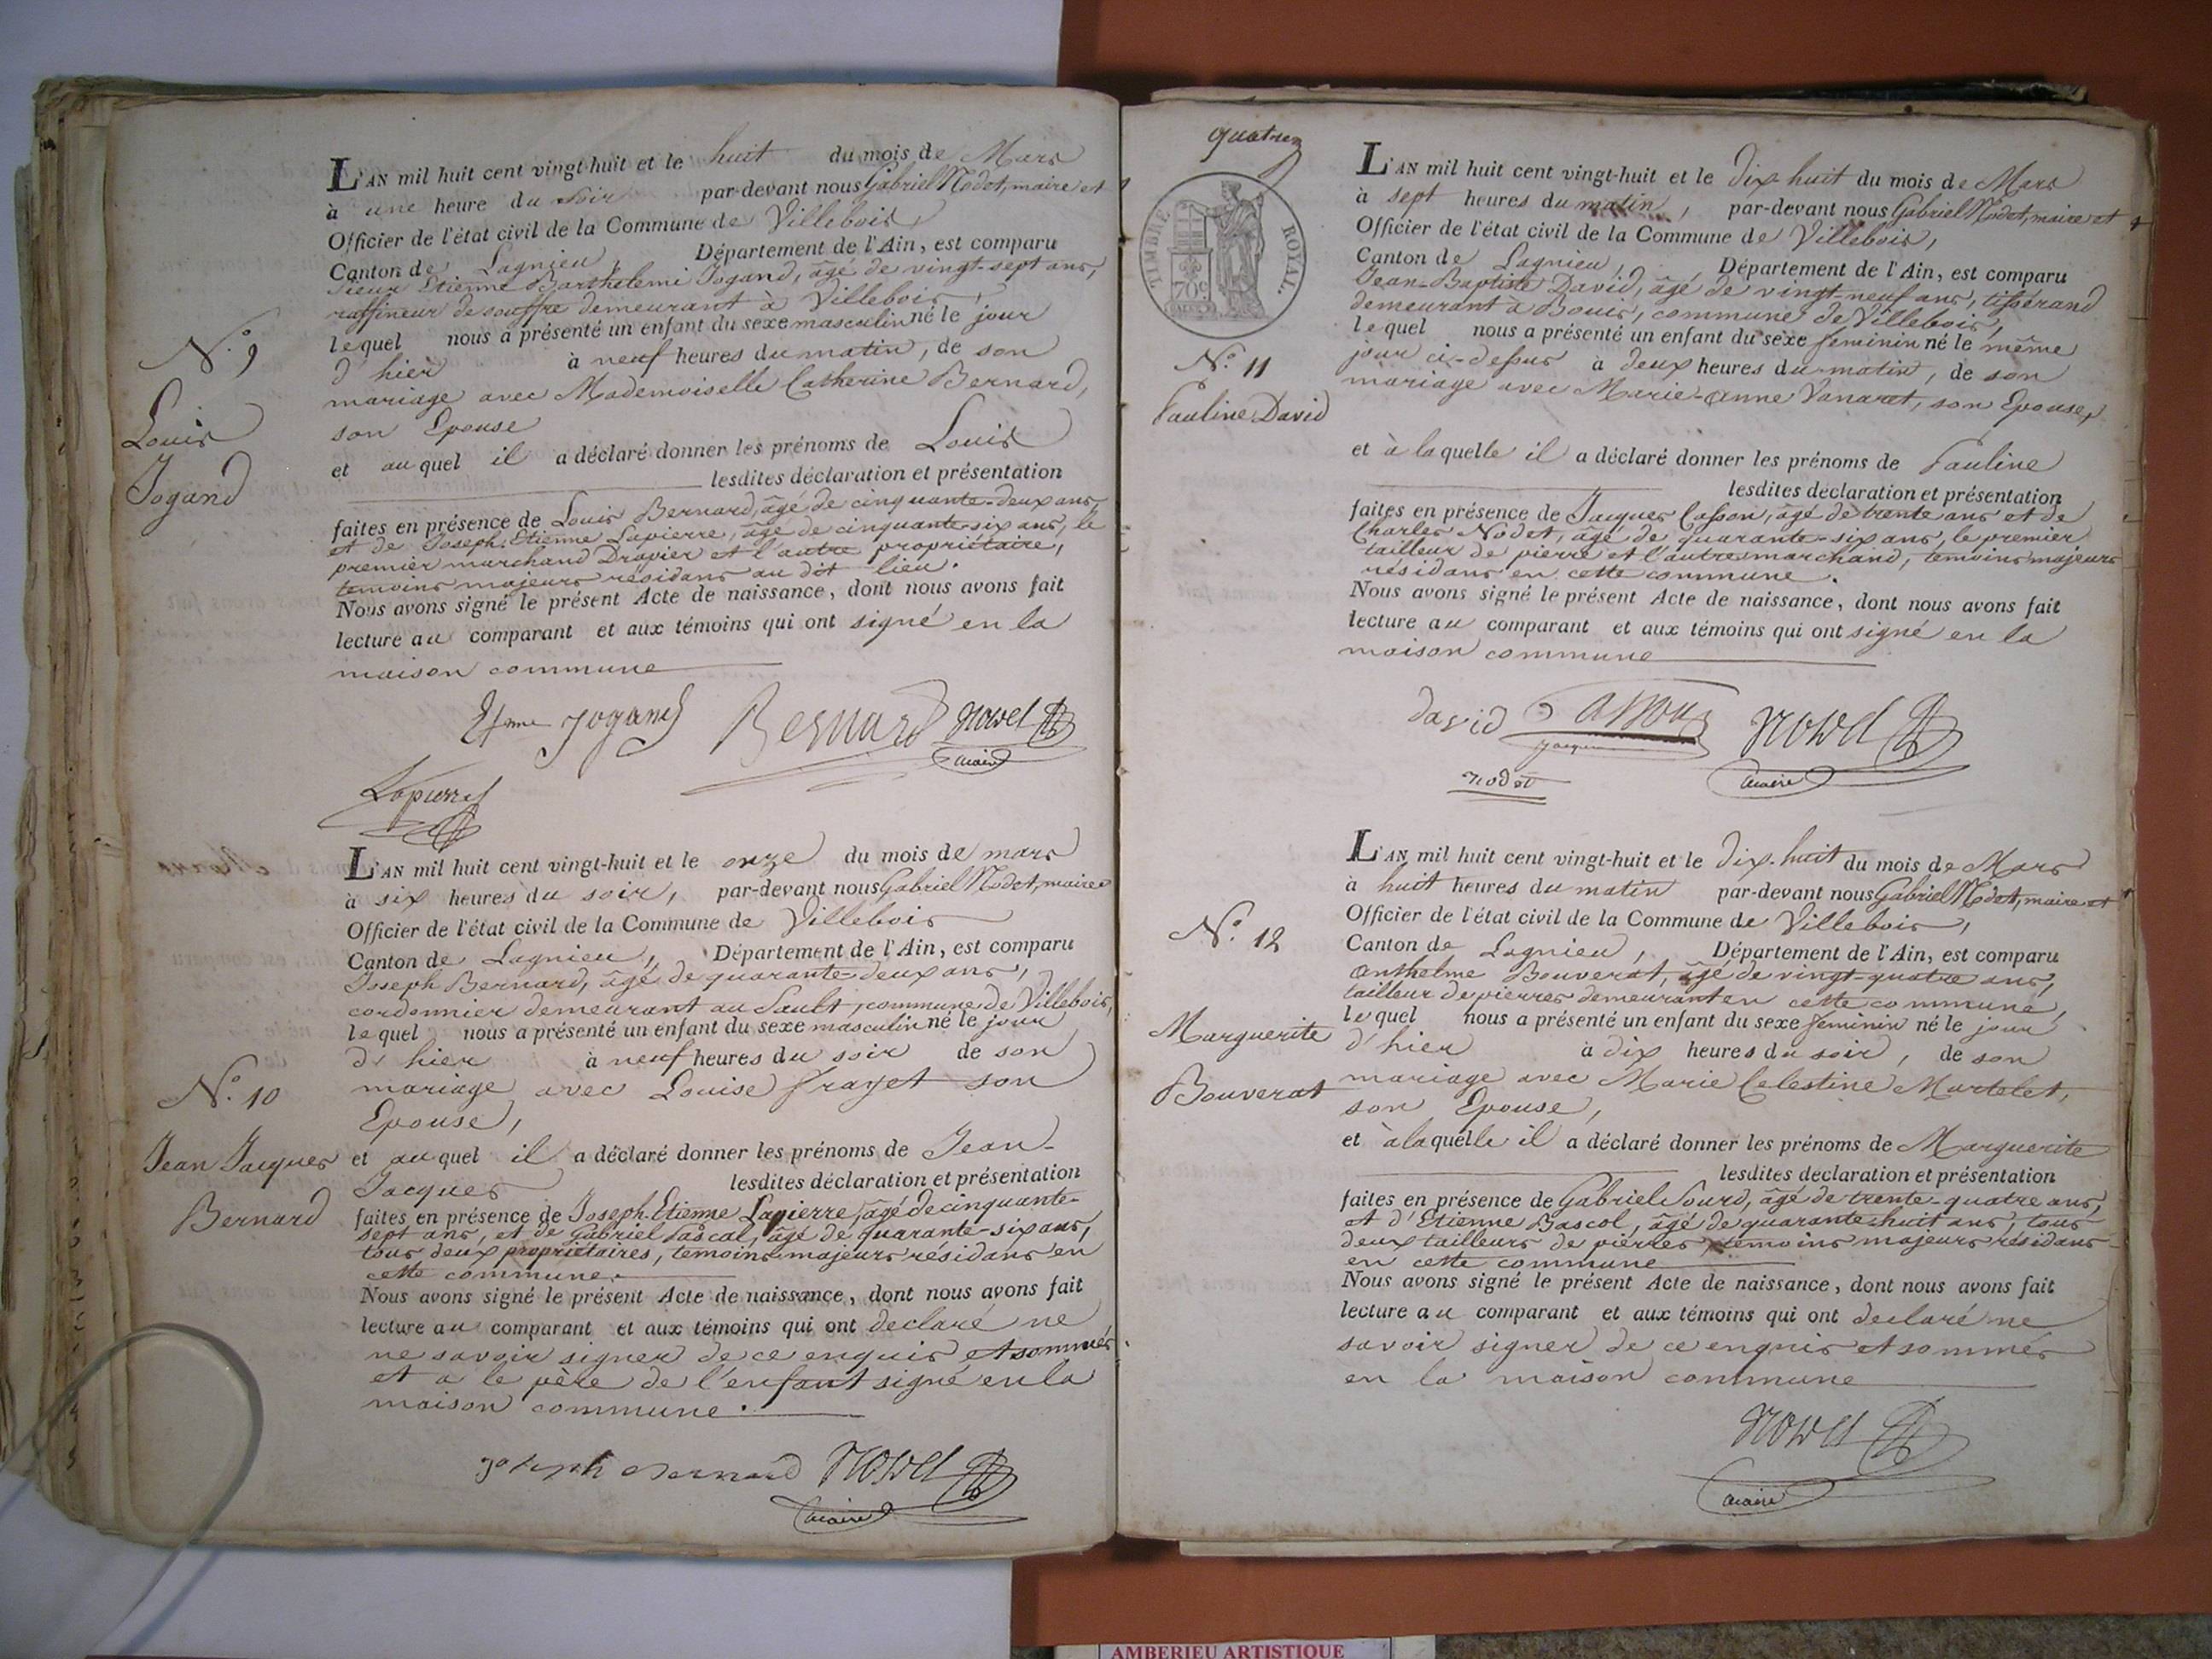 L'AN mil huit cent vingt-huit et le huit du mois de Mars
à une heure du soir par-devant nous Gabriel Nodet, maire et
Officier de l'état civil de la Commune de Villebois,
Canton de Lagnieu, Département de l'Ain, est comparu
Sieur Etienne Barthelemi Jogand, âgé de vingt-sept ans,
raffineur de souffre demeurant à Villebois,
lequel nous a présenté un enfant du sexe masculin né le jour
d'hier à neuf heures du matin, de son
mariage avec Mademoiselle Catherine Bernard,
son Epouse
et auquel il a déclaré donner les prénoms de Louis
lesdites déclaration et présentation
faites en présence de Louis Bernard, âgé de cinquante-deux ans,
et de Joseph-Etienne Lapierre, âgé de cinquante-six ans, le
premier marchand Drapier et l'autre propriétaire,
temoins majeurs résidans au dit lieu.
Nous avons signé le présent Acte de naissance, dont nous avons fait
lecture au comparant et aux témoins qui ont signé en la
maison commune
N.º 9
Louis
Jogand
Etienne Jogand Bernard Nodet
maire
Lapierre
L'AN mil huit cent vingt-huit et le onze du mois de mars
à six heures du soir, par-devant nous Gabriel Nodet, maire
Officier de l'état civil de la Commune de Villebois
Canton de Lagnieu, Département de l'Ain, est comparu
Joseph Bernard, âgé de quarante-deux ans,
cordonnier demeurant au Sault, commune de Villebois,
lequel nous a présenté un enfant du sexe masculin né le jour
d'hier à neuf heures du soir de son
mariage avec Louise Frayet son
Epouse,
et auquel il a déclaré donner les prénoms de Jean-
Jacques lesdites déclaration et présentation
faites en présence de Joseph-Etienne Lapierre, âgé de cinquante-
sept ans, et de Gabriel Pascal, âgé de quarante-six ans,
tous deux propriétaires, temoins majeurs résidans en
cette commune.
Nous avons signé le présent Acte de naissance, dont nous avons fait
lecture au comparant et aux témoins qui ont declaré ne
ne savoir signer de ce enquis et sommés
et a le père de l'enfant signé en la
maison commune.
N.º 10
Jean Jacques
Bernard
joseph Bernard Nodet
maire
quatre
TIMBRE ROYAL.
70c
L'AN mil huit cent vingt-huit et le Dix-huit du mois de Mars
à sept heures du matin, par-devant nous Gabriel Nodet, maire et
Officier de l'état civil de la Commune de Villebois,
Canton de Lagnieu, Département de l'Ain, est comparu
Jean-Baptiste David, âgé de vingt-neuf ans, tissérand
demeurant à Bouis, commune de Villebois,
lequel nous a présenté un enfant du sexe feminin né le même
jour ci-dessus à deux heures du matin, de son
mariage avec Marie-Anne Vanaret, son Epouse,
et à laquelle il a déclaré donner les prénoms de Pauline
lesdites déclaration et présentation
faites en présence de Jacques Casson, âgé de trente ans et de
Charles Nodet, âgé de quarante-six ans, le premier
tailleur de pierre et l'autre marchand, temoins majeurs
résidans en cette commune.
Nous avons signé le présent Acte de naissance, dont nous avons fait
lecture au comparant et aux témoins qui ont signé en la
maison commune
N.º 11
Pauline David
David Casson Nodet
jacques
maire
nodet
L'AN mil huit cent vingt-huit et le Dix-huit du mois de Mars
à huit heures du matin par-devant nous Gabriel Nodet, maire et
Officier de l'état civil de la Commune de Villebois,
Canton de Lagnieu, Département de l'Ain, est comparu
Anthelme Bouverat, âgé de vingt-quatre ans,
tailleur de pierres demeurant en cette commune,
lequel nous a présenté un enfant du sexe feminin né le jour
d'hier à dix heures du soir, de son
mariage avec Marie Celestine Martelet,
son Epouse,
et à laquelle il a déclaré donner les prénoms de Marguerite
lesdites déclaration et présentation
faites en présence de Gabriel Sourd, âgé de trente-quatre ans,
et d'Etienne Bascol, âgé de quarante-huit ans, tous
deux tailleurs de pierres, temoins majeurs résidans
en cette commune
Nous avons signé le présent Acte de naissance, dont nous avons fait
lecture au comparant et aux témoins qui ont declaré ne
savoir signer de ce enquis et sommés
en la maison commune
N.º 12
Marguerite
Bouverat
Nodet
maire
AMBERIEU ARTISTIQUE